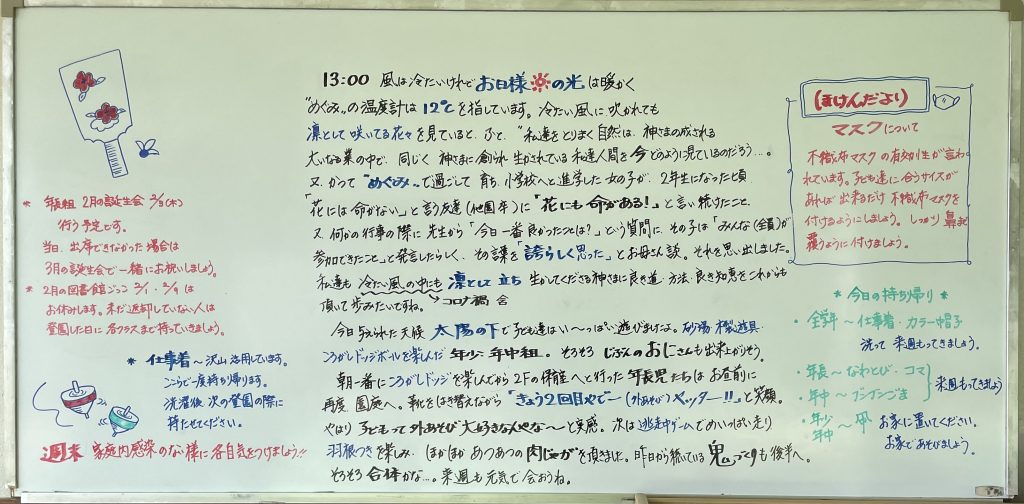 13:00 風は冷たいけれど お日様の光は暖かく
"めぐみ"の温度計は 12℃を指しています。冷たい風に吹かれても
凛として咲いてる花々を見ていると、ふと、"私達をとりまく自然は、神さまの成される
大いなる業の中で、同じく神さまに創られ生かされている私達人間を今どのように見ているのだろう…。
又、かつて"めぐみ"で過ごして育ち、小学校へと進学した女の子が、2年生になった頃
「花には命がない」と言う友達(他園卒)に「花にも命がある!」と言い続けたこと、
又、何かの行事の際に先生から「今日一番良かったことは?」という質問に、その子は「みんな(全員)が
参加できたこと」と発言したらしく、その言葉を「誇らしく思った」とお母さん談。それを思い出しました。
私達も冷たい風の中も凛として立ち 生かしてくださる神さまに良き道・方法・良き知恵をこれからも
コロナ禍
頂いて歩みたいですね。
今日与えられた天候 太陽の下で子ども達はい〜っぱい遊びましたよ。砂場・木製遊具・
ころがしドッジボールを楽しんだ年少・年中組。そろそろ じぶんのおにさんも出来上がりそう。
朝一番にころがしドッジを楽しんでから2Fの保育へと行った年長児たちはお昼前に
再度、園庭へ。靴をはき替えながら「きょう2回目やで〜(外あそび)ベッター!!」と笑顔。
やはり 子どもって外あそび大好きなんやな〜と実感。次は逃走中ゲームでめいっぱい走り
羽根つきを楽しみ、ほかほか あつあつの肉じゃがを頂きました。昨日から続いている鬼づくりも後半へ。
そろそろ 合体かな…。来週も元気で会おうね。
* 年長組 2月の誕生会 2/3(木)
行う予定です。
当日、出席できなかった場合は
3月の誕生会で一緒にお祝いしましょう。
* 2月の図書館ごっこ 2/1・2/9は
お休みします。未だ返却していない人は
登園した日に各クラスまで持っていきましょう。
* 仕事着〜沢山活用しています。
ここらで一度持ち帰ります。
洗濯後、次の登園の際に
持たせてください。
週末 家庭内感染のない様に各自気をつけましょう!!
(ほけんだより)
マスクについて
不織布マスクの有効性が言わ
れています。子ども達に合うサイズが
あれば出来るだけ不織布マスクを
付けるようにしましょう。しっかり鼻まで
覆うように付けましょう。
* 今日の持ち帰り *
・全学年〜仕事着・カラー帽子
洗って来週もってきましょう。
・年長〜なわとび・コマ
・年中〜ブンブンごま
来週もってきましょう
・年少 年中〜凧 お家に置いてください。
お家であそびましょう。